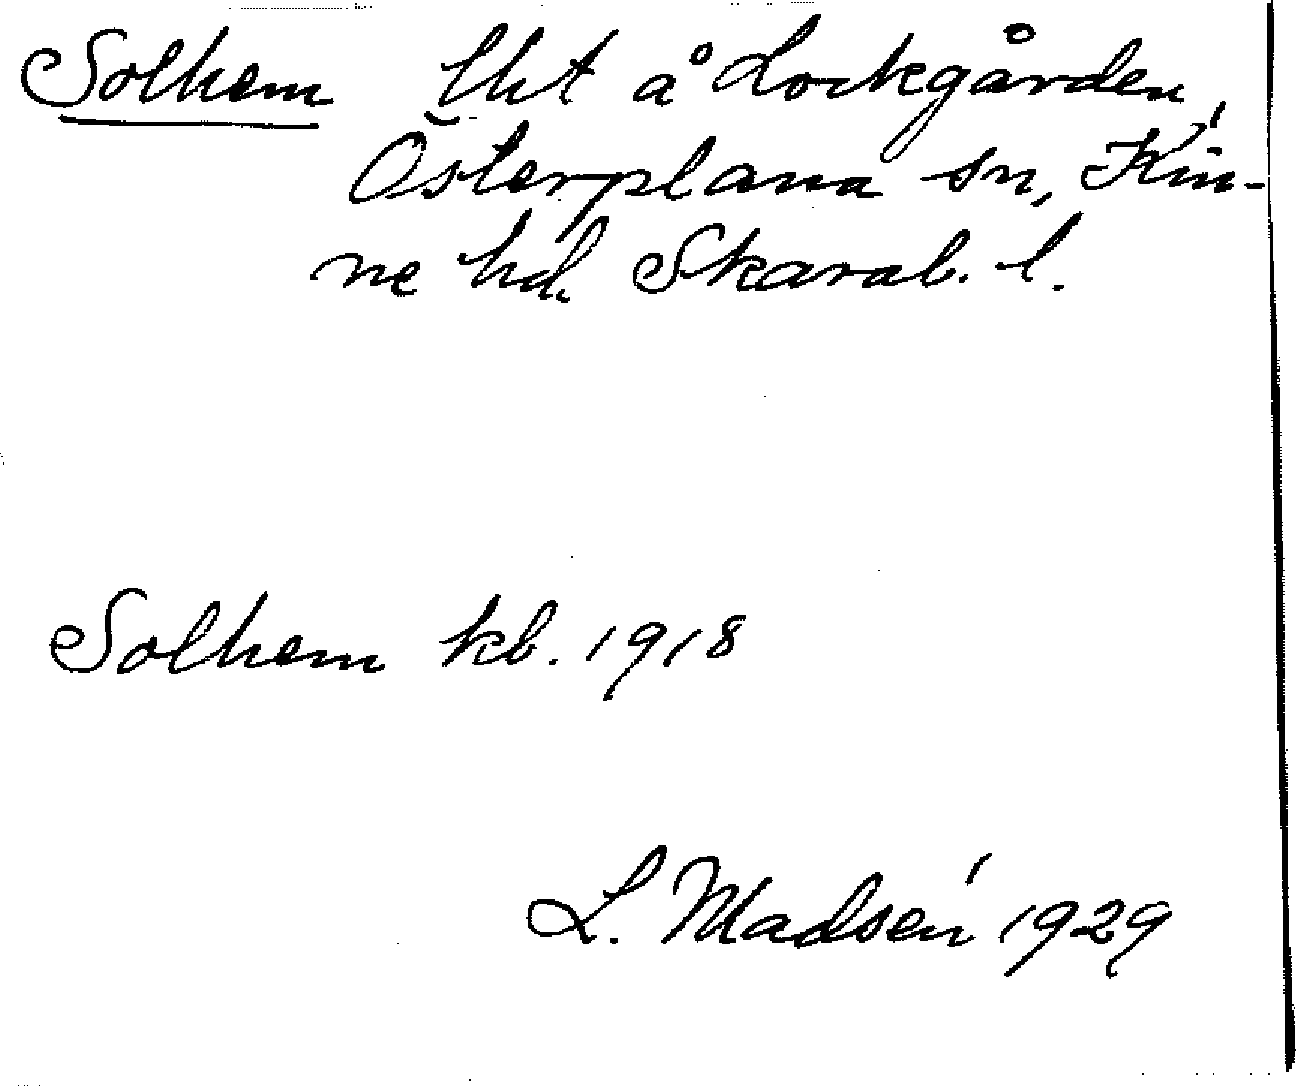 Solhem lht å Lockgården,
Österplana sn, Kin-
ne hd. Skarab. l.
Solhem kb. 1918
L. Madsén 1929